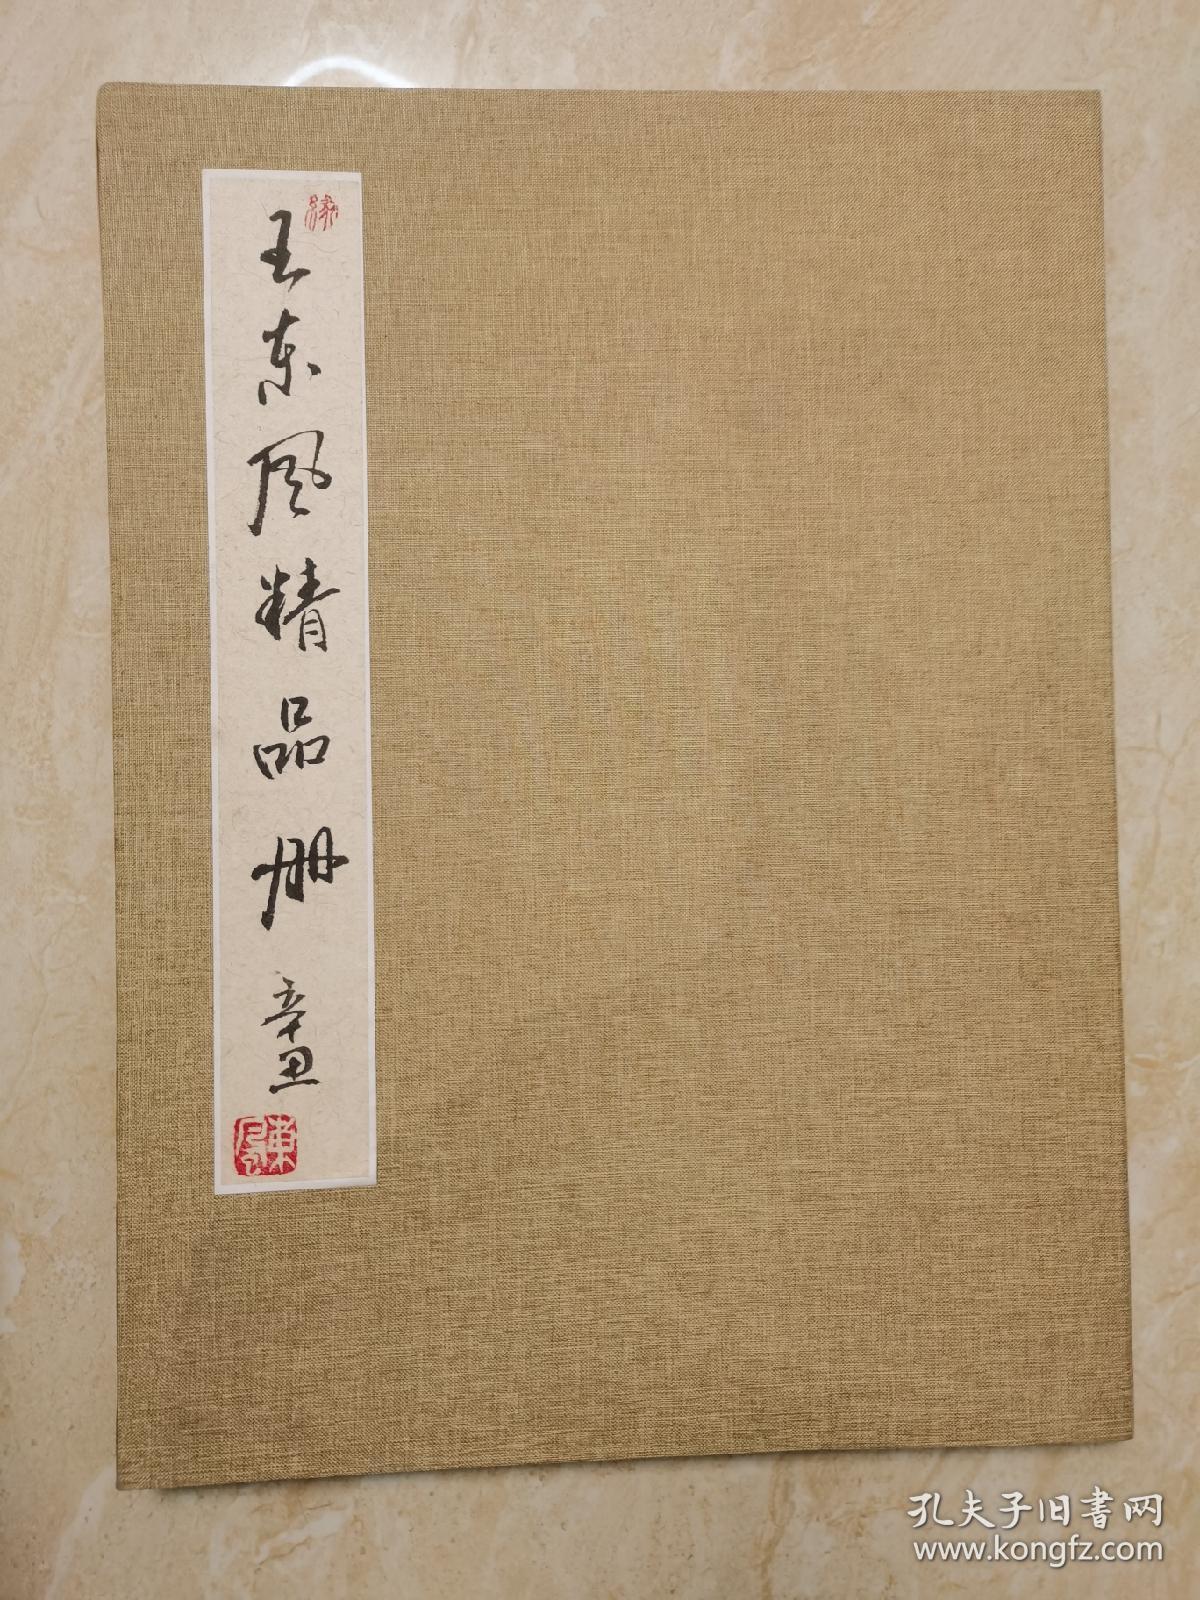 缘
王东风精品册
辛丑
東風
孔夫子旧書网
www.kongfz.com